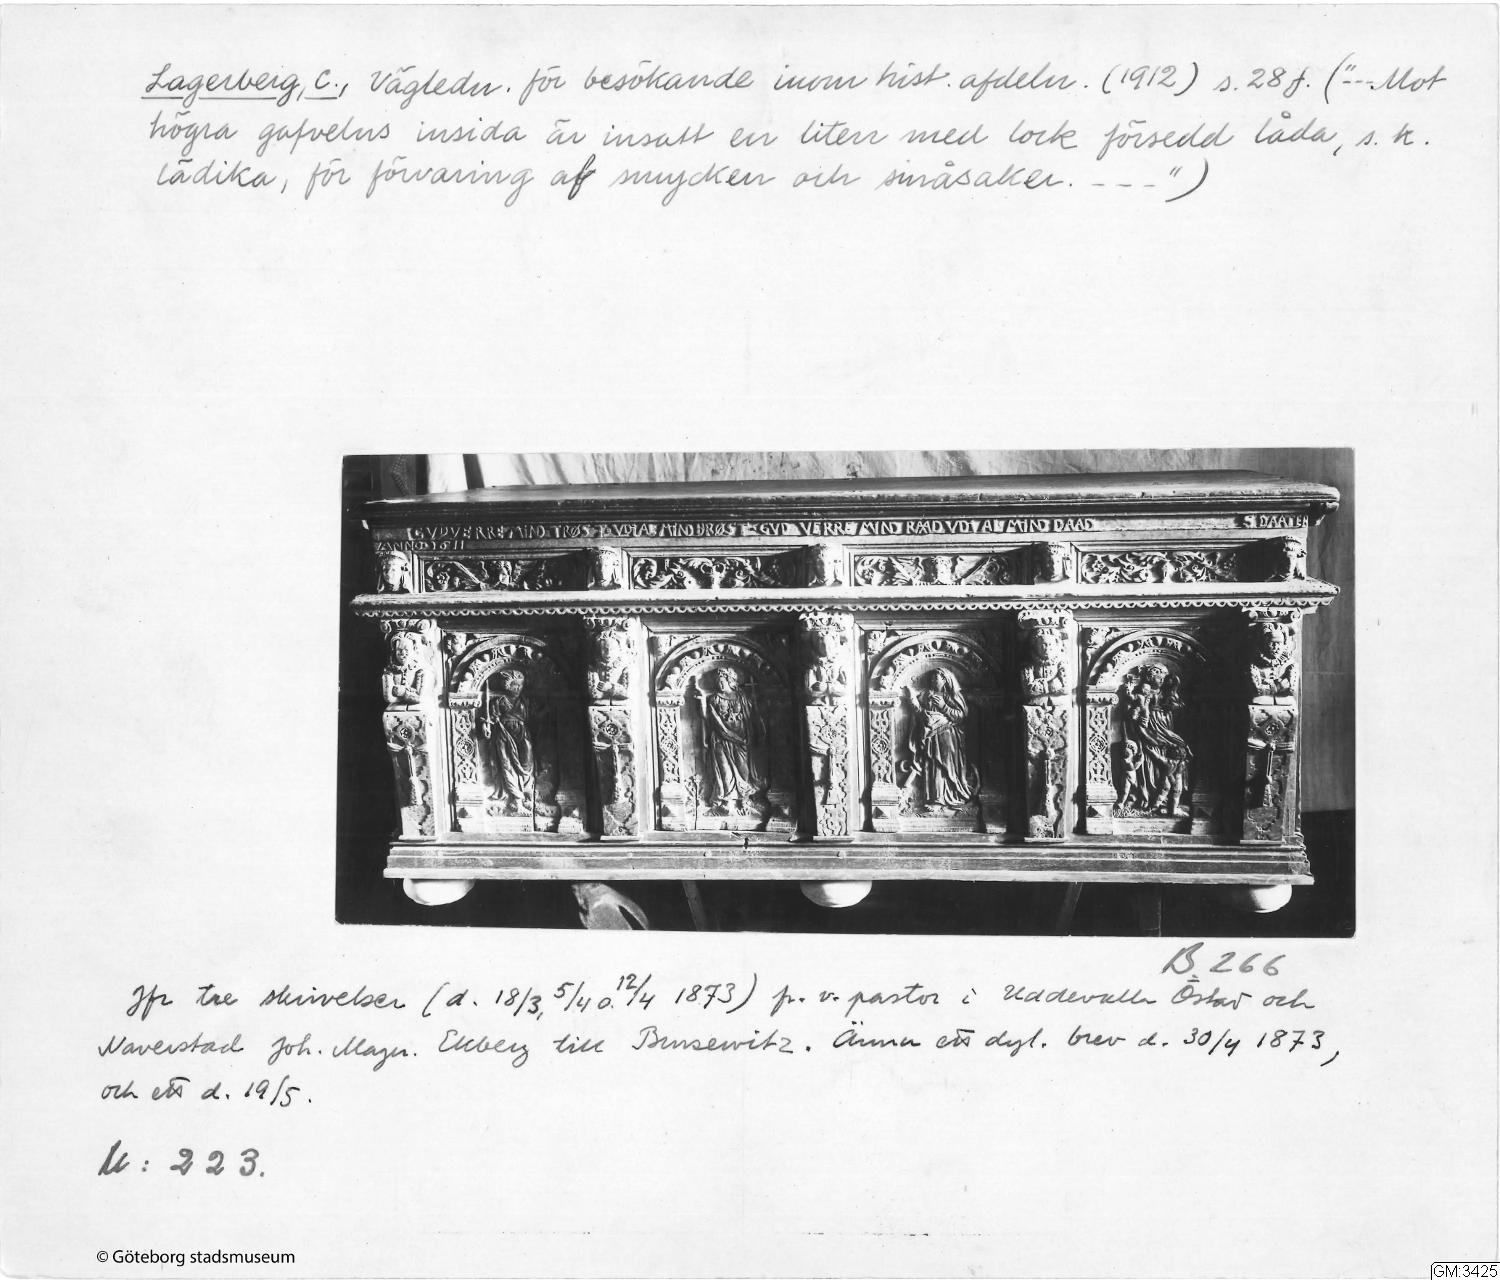 Lagerberg, C., Vägledn. för besökande inom hist. afdeln. (1912) s. 28 f. ("--- Mot
högra gafvelns insida är insatt en liten med lock försedd låda, s. k.
lädika, för förvaring af smycken och småsaker. --- ")
GUD VERRE MIND TRØST UDI AL MIND BRØST GUD VERRE MIND RAAD UDI AL MIND DAAD S DAATER
ANNO 1611
B 266
Jfr tre skrivelser (d. 18/3, 5/4 o. 12/4 1873) fr. v. pastor i Uddevalla Östad och
Naverstad Joh. Magn. Ekberg till Brusewitz. Ännu ett dyl. brev d. 30/4 1873,
och ett d. 19/5.
U: 223.
© Göteborg stadsmuseum
GM:3425